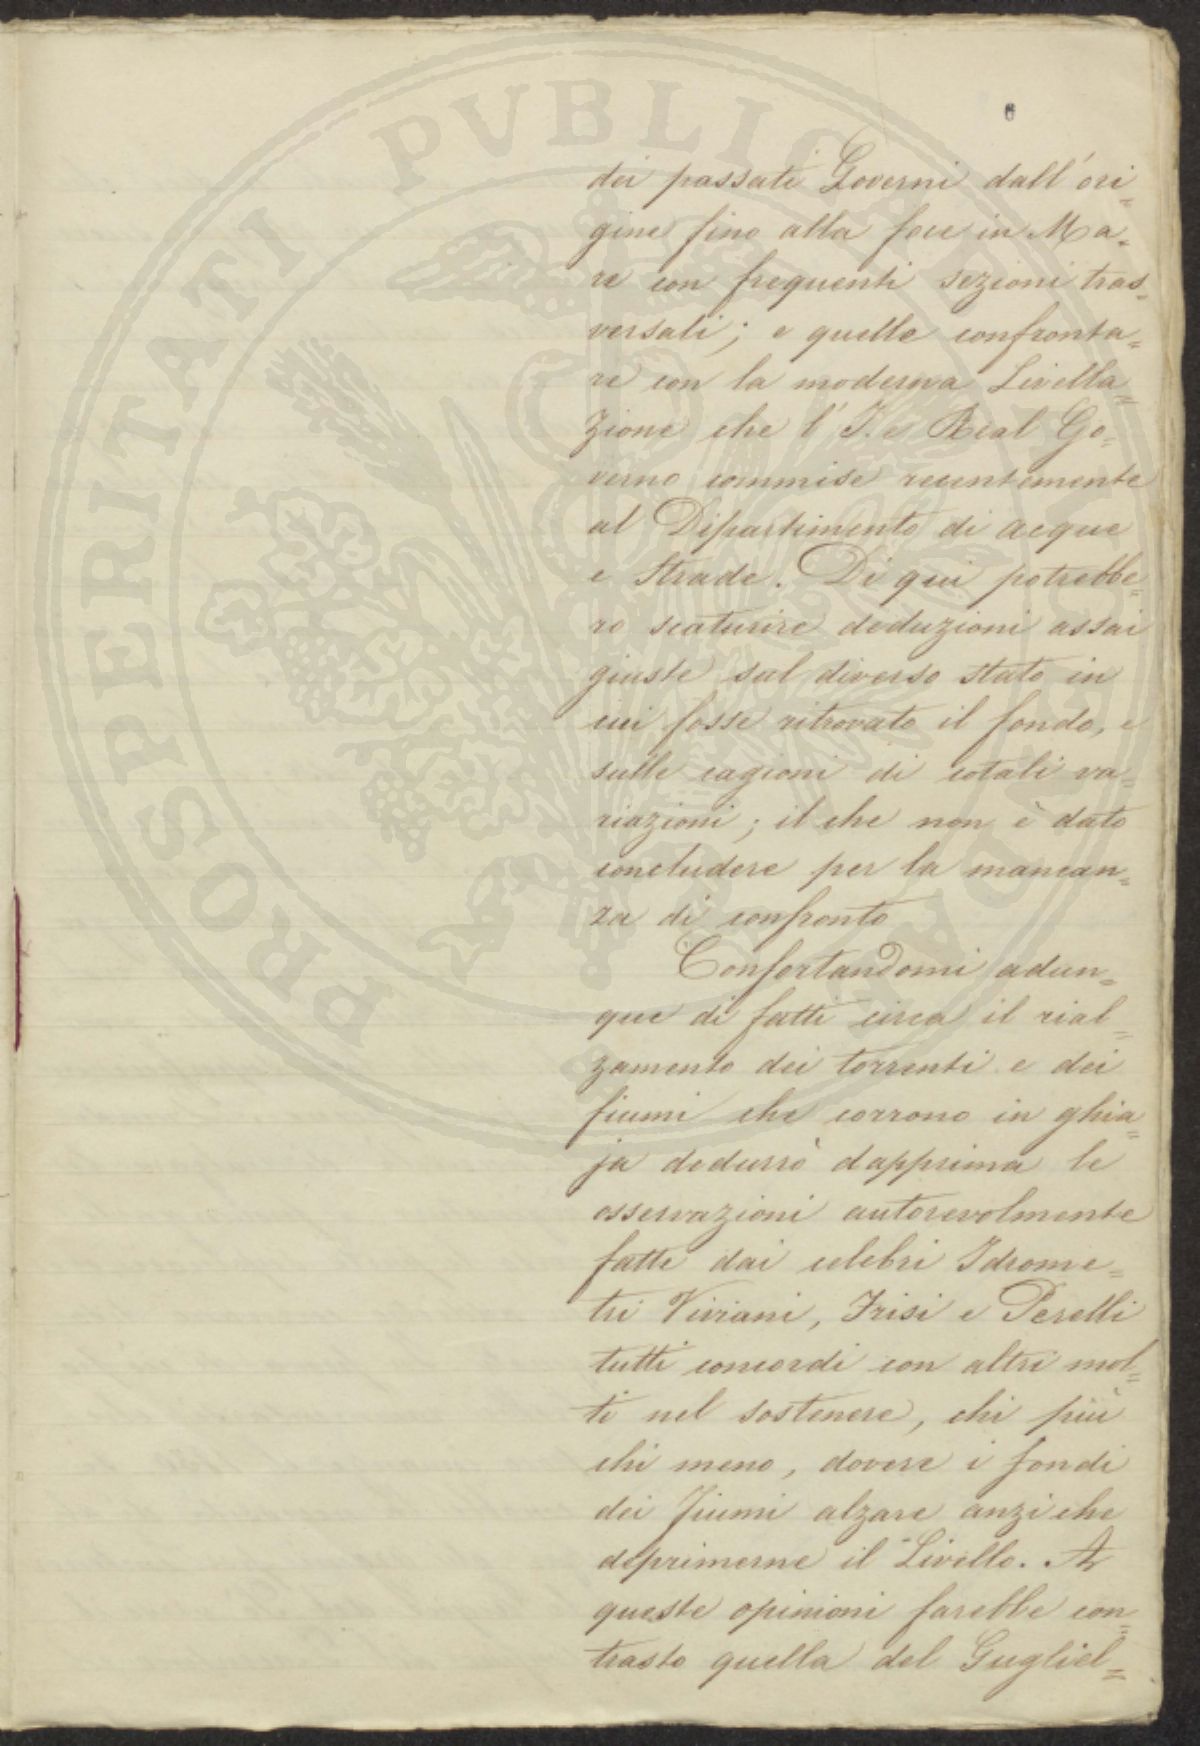 6
dei passati Governi dall'ori=
gine fino alla foce in Ma=
re con frequenti sezioni tras=
versali; e quelle confronta=
re con la moderna Livella=
zione che l'I. e Real Go=
verno commise recentemente
al Dipartimento di acque
e Strade. Di qui potrebbe=
ro scaturire deduzioni assai
giuste sul diverso stato in
cui fosse ritrovato il fondo, e
sulle cagioni di cotali va=
riazioni; il che non è dato
concludere per la mancan=
za di confronto
Confortandomi adun=
que di fatti circa il rial=
zamento dei torrenti e dei
fiumi che corrono in ghia=
ja dedurrò dapprima le
osservazioni autorevolmente
fatte dai celebri Idrome=
tri Viviani, Frisi e Perelli
tutti concordi con altri mol=
ti nel sostenere, chi più
chi meno, dovere i fondi
dei fiumi alzare anzi che
deprimerne il Livello. A
queste opinioni farebbe con=
trasto quella del Gugliel=
PROSPERITATI PUBLICAE AUGENDAE